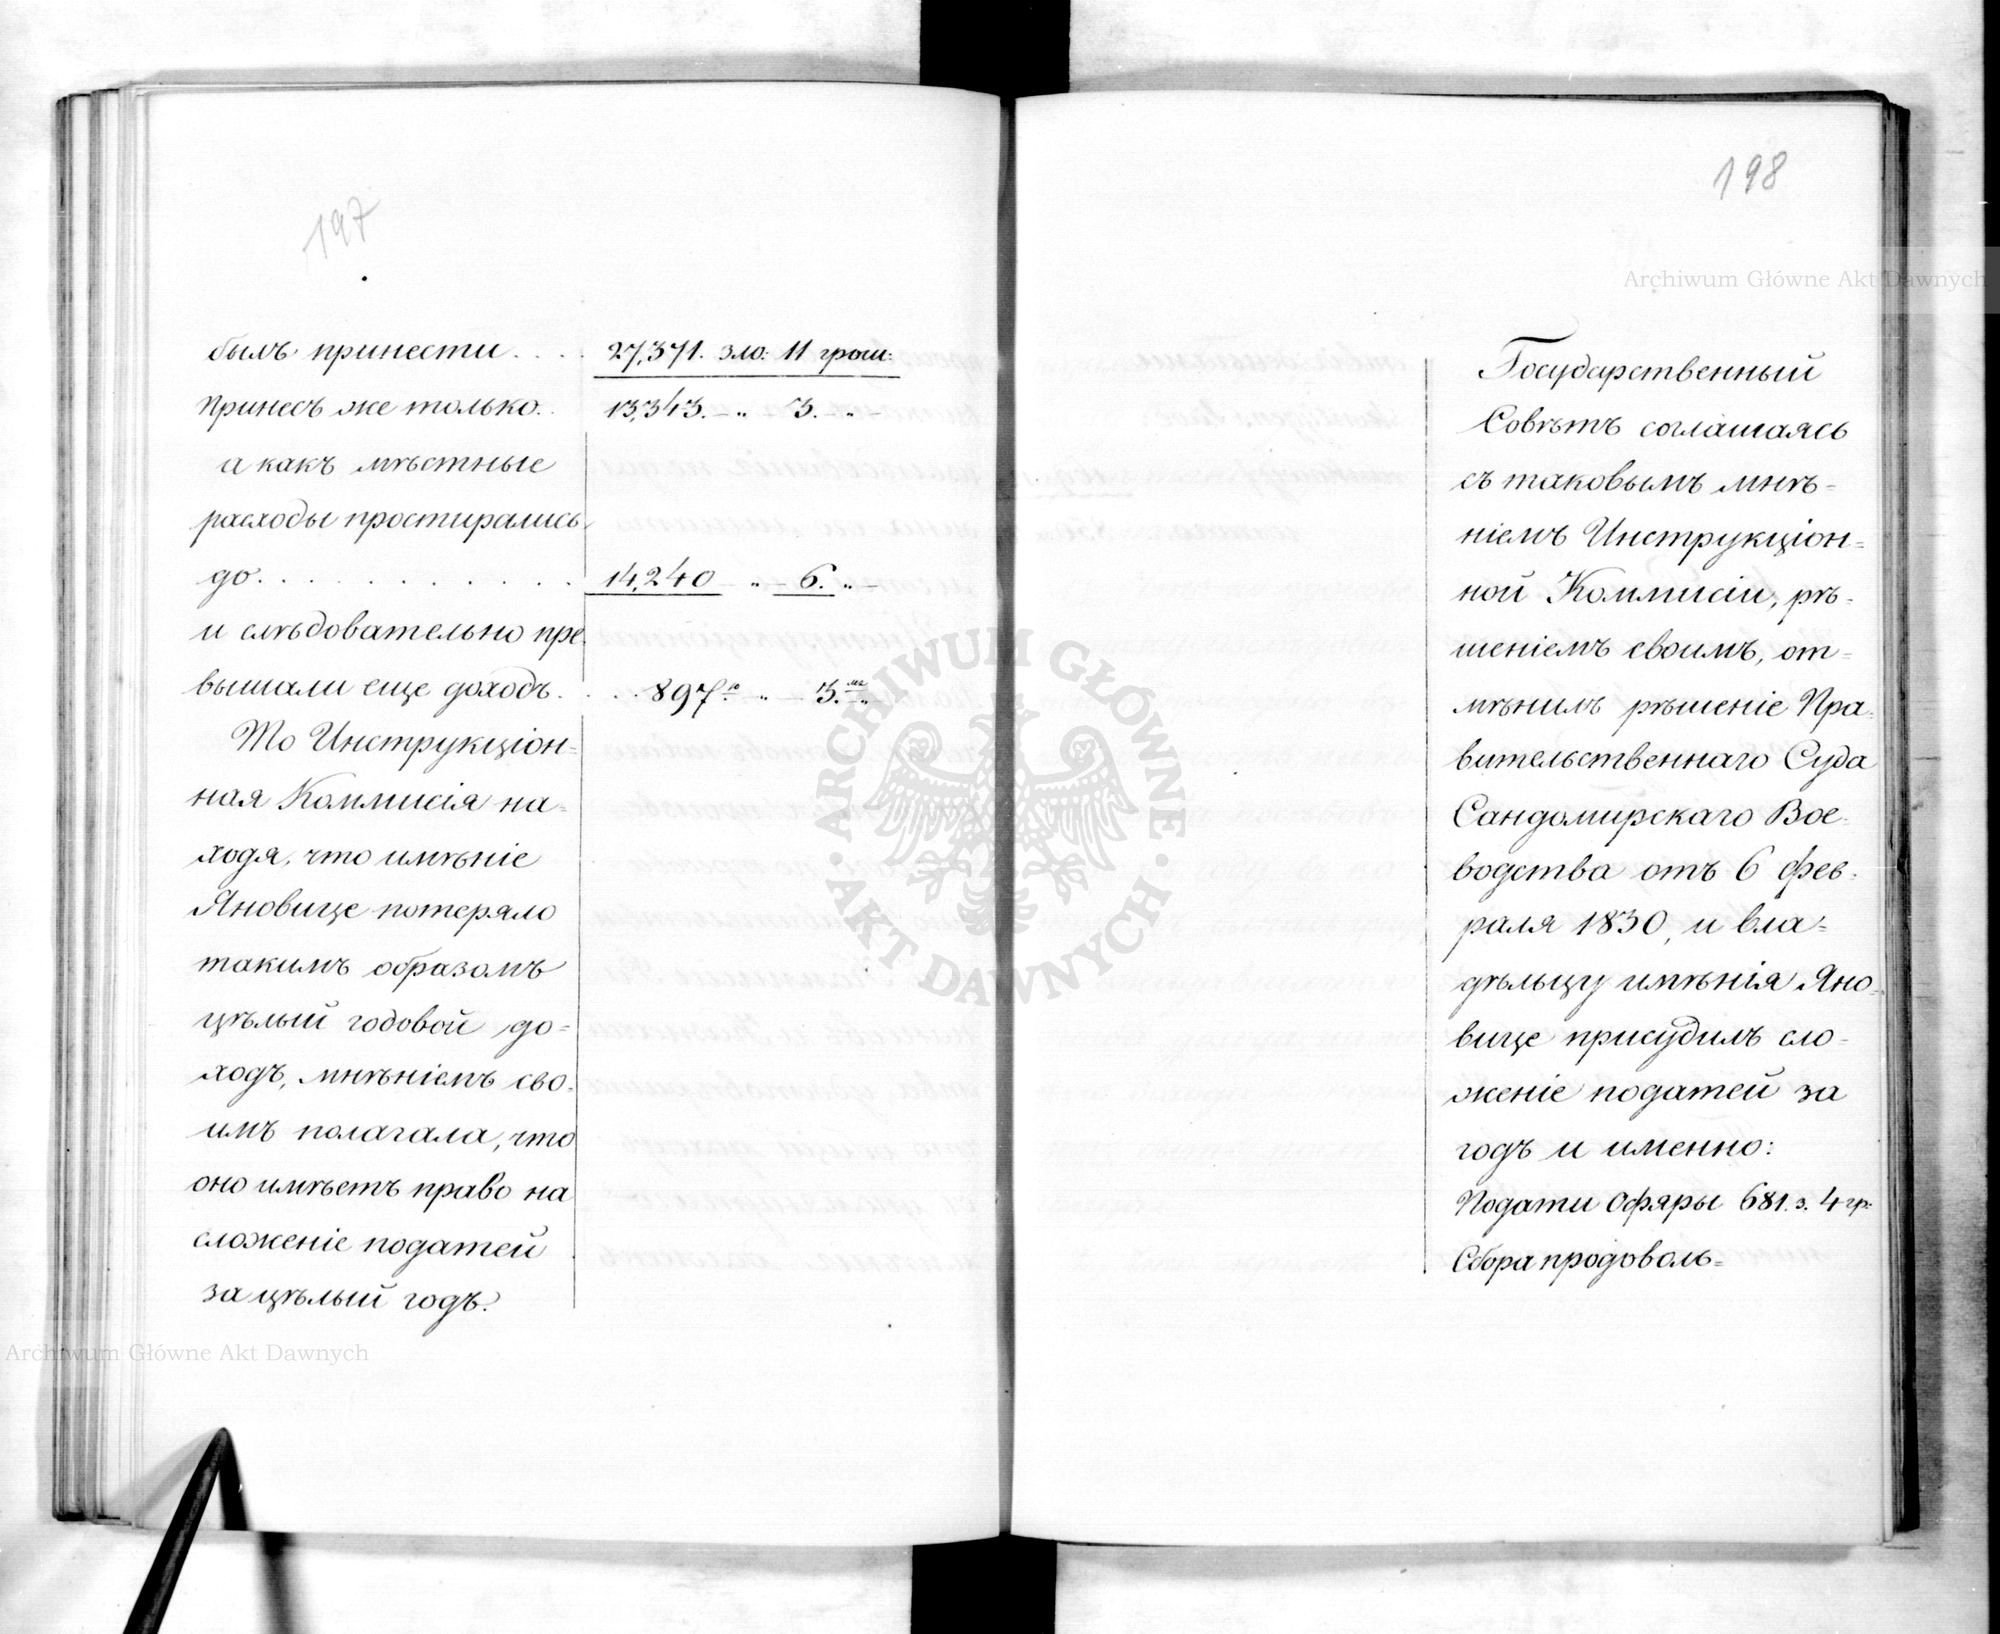 197
былъ принести . . . . 27,371. зло: 11 грош:
Принесъ же только. . 13,343. — „ 3. — „ —
а какъ мѣстные
расходы простирались
до. . . . . . . . . . . . 14,240 — „ — 6. „ —
и слѣдовательно пре
вышали еще доходъ. . . . 897 го „ — 3. мя „
То Инструкціон=
ная Коммисія на=
ходя, что имѣніе
Яновице потеряло
такимъ образомъ
цѣлый годовой до=
ходъ, мнѣніемъ сво=
имъ полагала, что
оно имѣетъ право на
сложеніе податей
за цѣлый годъ.
198
Государственный
Совѣтъ соглашаясь
съ таковымъ мнѣ=
ніемъ Инструкціон=
ной Коммисіи, рѣ=
шеніемъ своимъ, от=
мѣнилъ рѣшеніе Пра=
вительственнаго Суда
Сандомирскаго Вое=
водства отъ 6 фев=
раля 1830, и вла=
дѣльцу имѣнія Яно=
вице присудилъ сло=
женіе податей за
годъ и именно:
Подати Офяры 681. з. 4 гр.
Сбора продоволь=
ARCHIWUM GŁÓWNE
AKT DAWNYCH
Archiwum Główne Akt Dawnych
Archiwum Główne Akt Dawnych